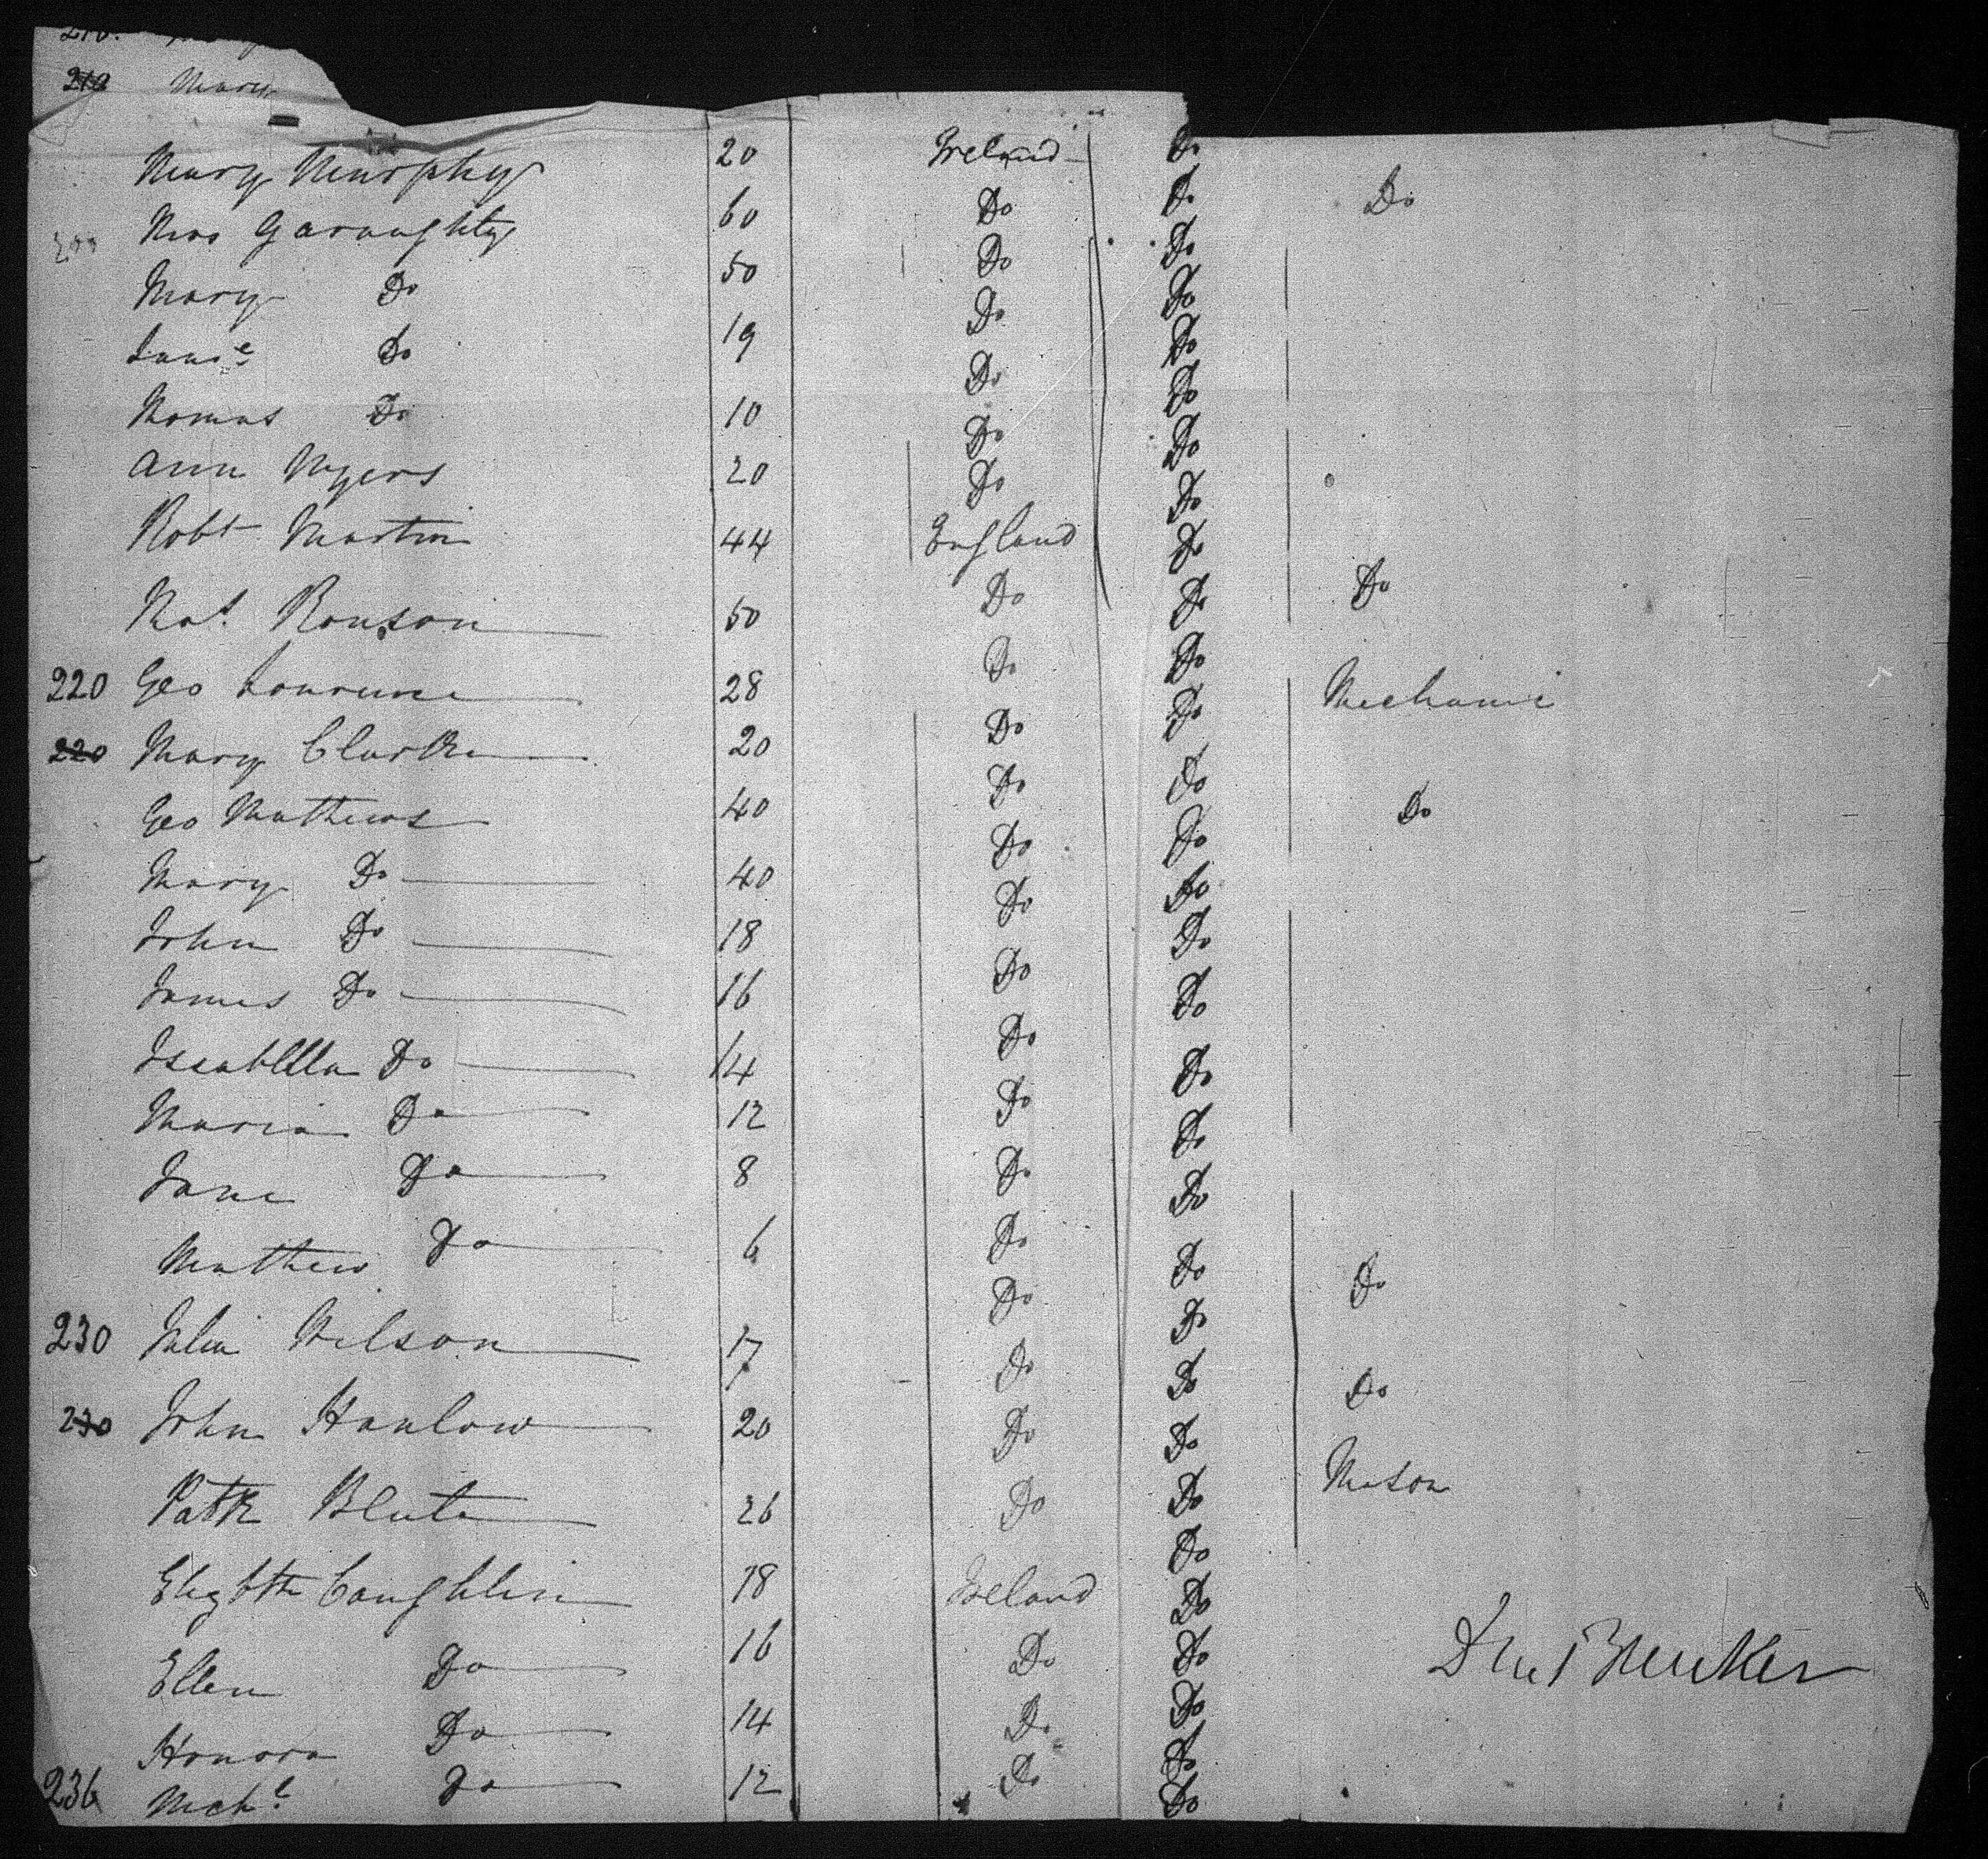 210.
219 Mary
Mary Murphy 20 Ireland Do
Garaughty 60 Do Do Do
Mary Do 50 Do Do
Do 19 Do Do
Thomas Do 10 Do Do
Ann Myers 20 Do Do
Robt Martin 44 England Do
Ronson 50 Do Do Do
220 Geo 28 Do Do Mechanic
220 Mary Clarke 20 Do Do
Geo Mathews 40 Do Do Do
Mary Do 40 Do Do
John Do 18 Do Do
James Do 16 Do Do
Isabella Do 14 Do Do
Maria Do 12 Do Do
Jane Do 8 Do Do
Mathew Do 6 Do Do Do
230 Julia Wilson 17 Do Do
230 John Hanlow 20 Do Do Do
Patk Blute 26 Do Do Mason
Coughlin 18 Ireland Do
Ellen Do 16 Do Do
Honora Do 14 Do Do
236 Mchl Do 12 Do Do